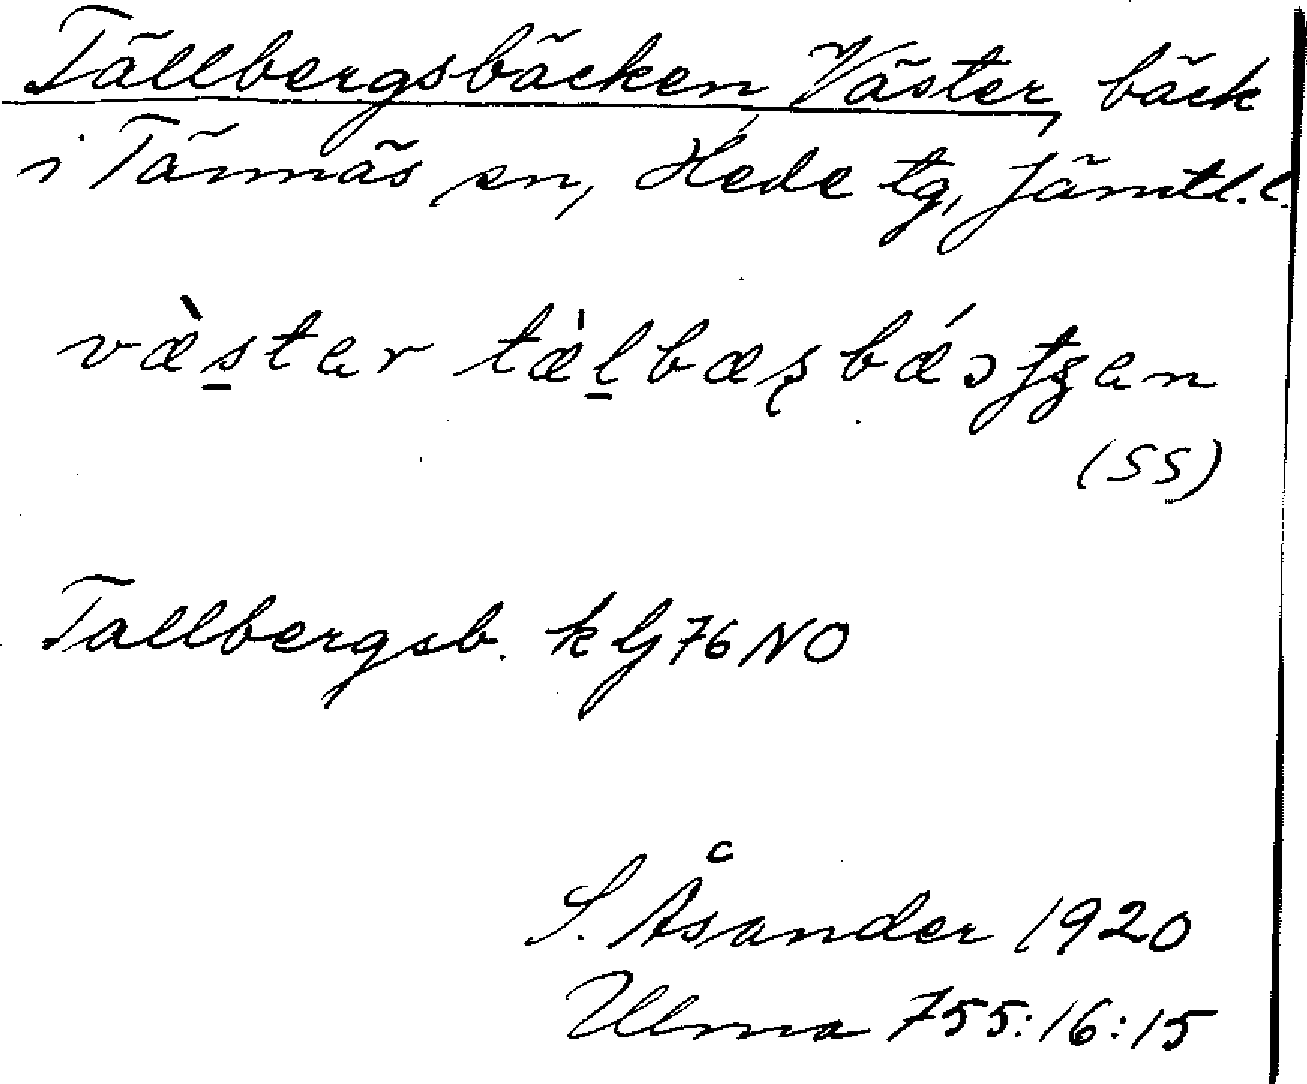 Tällbergsbäcken, Väster, bäck
i Tännäs sn, Hede tg, Jämtl.l.
væ̀s̲ter tæ̀l̲bæʂbǽɔʃʒen
(SS)
Tallbergsb. k G 76 NO
S. Åsander 1920
Ulma 755:16:15